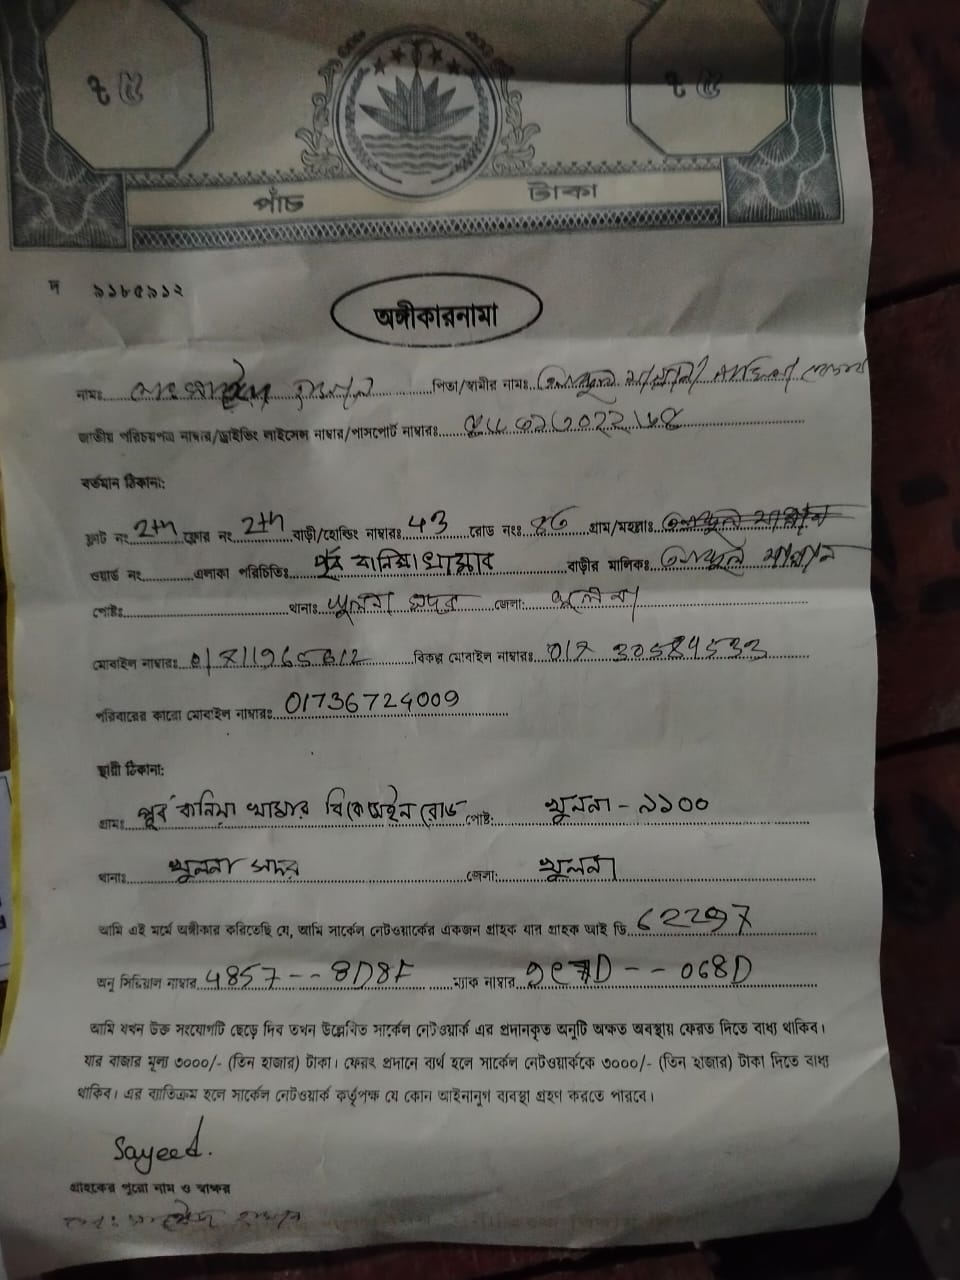 ৳ ৫ ৳ ৫
পাঁচ টাকা
দ ৯১৮৫৯১২
অঙ্গীকারনামা
নামঃ পিতা/স্বামীর নামঃ
জাতীয় পরিচয়পত্র নাম্বার/ড্রাইভিং লাইসেন্স নাম্বার/পাসপোর্ট নাম্বারঃ
বর্তমান ঠিকানা:
ফ্লাট নং 2th ফ্লোর নং 2th বাড়ী/হোল্ডিং নাম্বারঃ 43 রোড নংঃ গ্রাম/মহল্লাঃ
ওয়ার্ড নং এলাকা পরিচিতিঃ পূর্ব বানিয়া খামার বাড়ীর মালিকঃ
পোষ্টঃ থানাঃ খুলনা সদর জেলা: খুলনা
মোবাইল নাম্বারঃ বিকল্প মোবাইল নাম্বারঃ
পরিবারের কারো মোবাইল নাম্বারঃ 01736724009
স্থায়ী ঠিকানা:
গ্রামঃ পূর্ব বানিয়া খামার বিকে মেইন রোড পোষ্ট: খুলনা - ৯১০০
থানাঃ খুলনা সদর জেলা: খুলনা
আমি এই মর্মে অঙ্গীকার করিতেছি যে, আমি সার্কেল নেটওয়ার্কের একজন গ্রাহক যার গ্রাহক আই ডি 62297
অনু সিরিয়াল নাম্বার 4857--8D8F ম্যাক নাম্বার 068D
আমি যখন উক্ত সংযোগটি ছেড়ে দিব তখন উল্লেখিত সার্কেল নেটওয়ার্ক এর প্রদানকৃত অনুটি অক্ষত অবস্থায় ফেরত দিতে বাধ্য থাকিব।
যার বাজার মূল্য ৩০০০/- (তিন হাজার) টাকা। ফেরৎ প্রদানে ব্যর্থ হলে সার্কেল নেটওয়ার্ককে ৩০০০/- (তিন হাজার) টাকা দিতে বাধ্য
থাকিব। এর ব্যতিক্রম হলে সার্কেল নেটওয়ার্ক কর্তৃপক্ষ যে কোন আইনানুগ ব্যবস্থা গ্রহণ করতে পারবে।
Sayeed.
গ্রাহকের পুরো নাম ও স্বাক্ষর